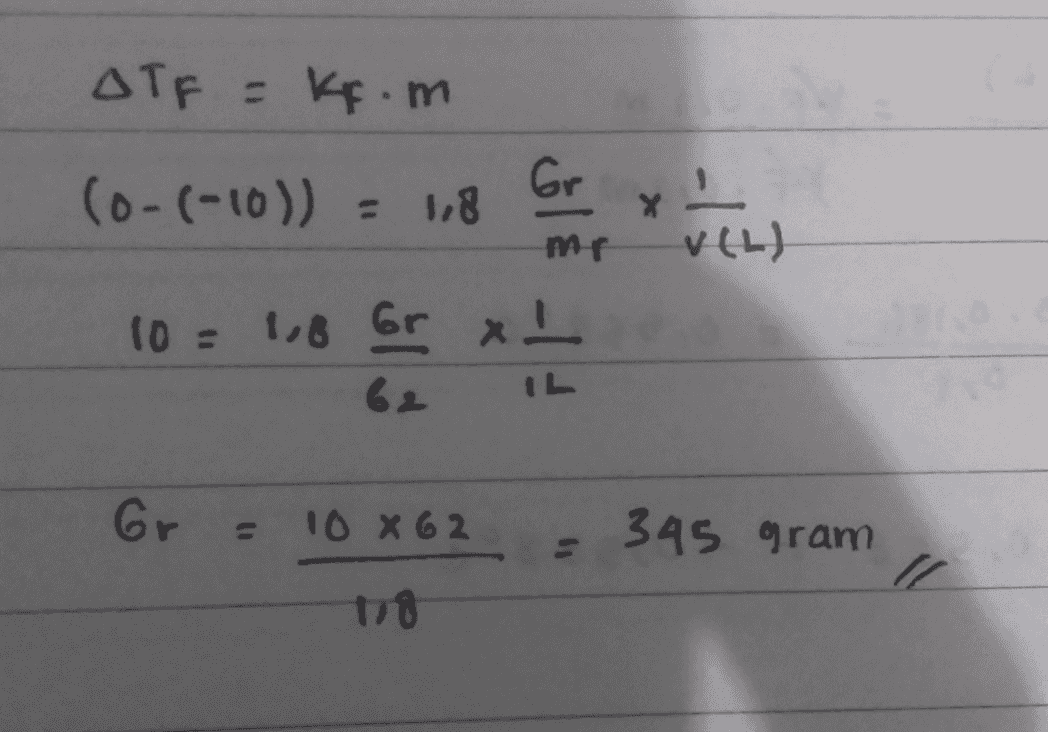 ΔTF = KF . m
(0-(-10)) = 1,8 Gr/mr x 1/V(L)
10 = 1,8 Gr/62 x 1/1L
Gr = 10 x 62/1,8 = 345 gram //